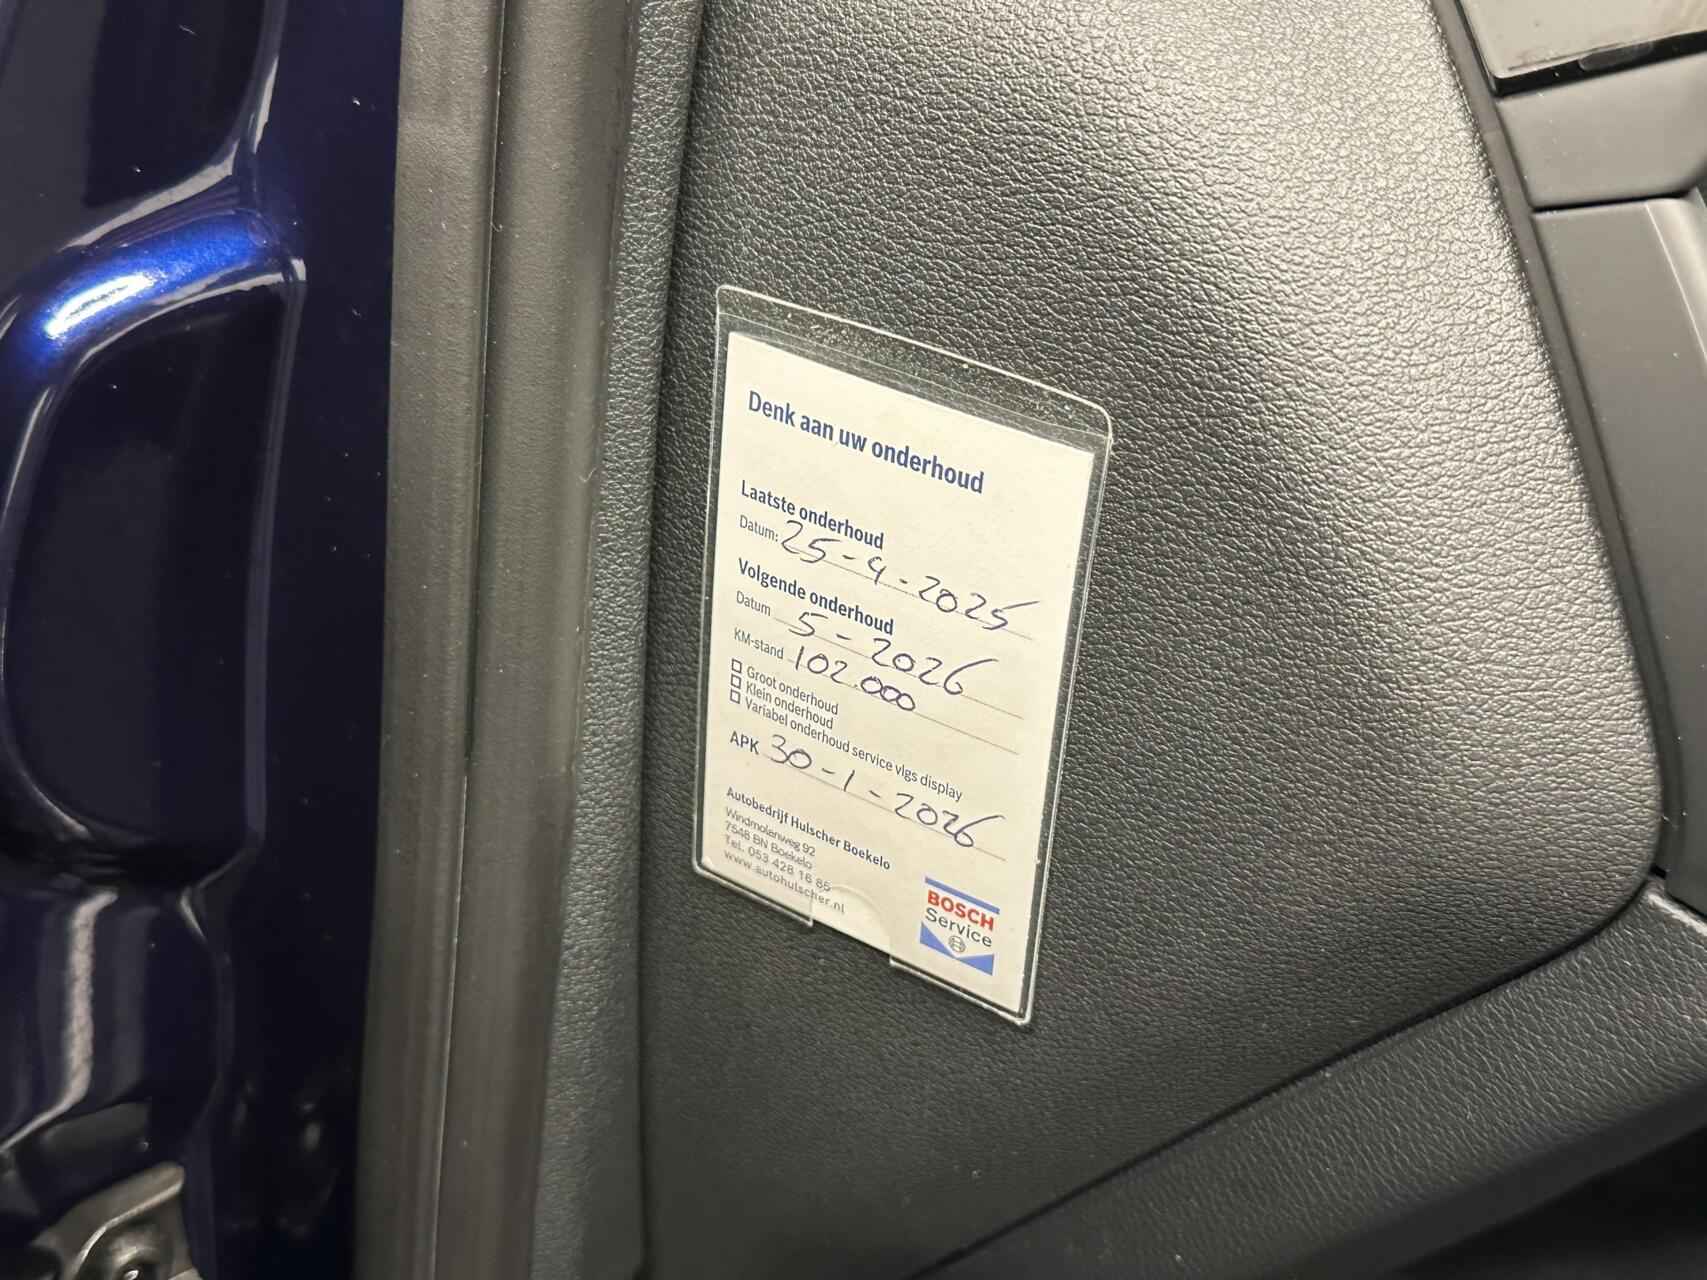 Denk aan uw onderhoud
Laatste onderhoud
Datum: 25-4-2025
Volgende onderhoud
Datum 5-2026
KM-stand 102.000
Groot onderhoud
Klein onderhoud
Variabel onderhoud service vlgs display
APK 30-1-2026
Autobedrijf Hulscher Boekelo
Windmolenweg 92
7548 BN Boekelo
Tel. 053 428 16 86
www.autohulscher.nl
BOSCH
Service